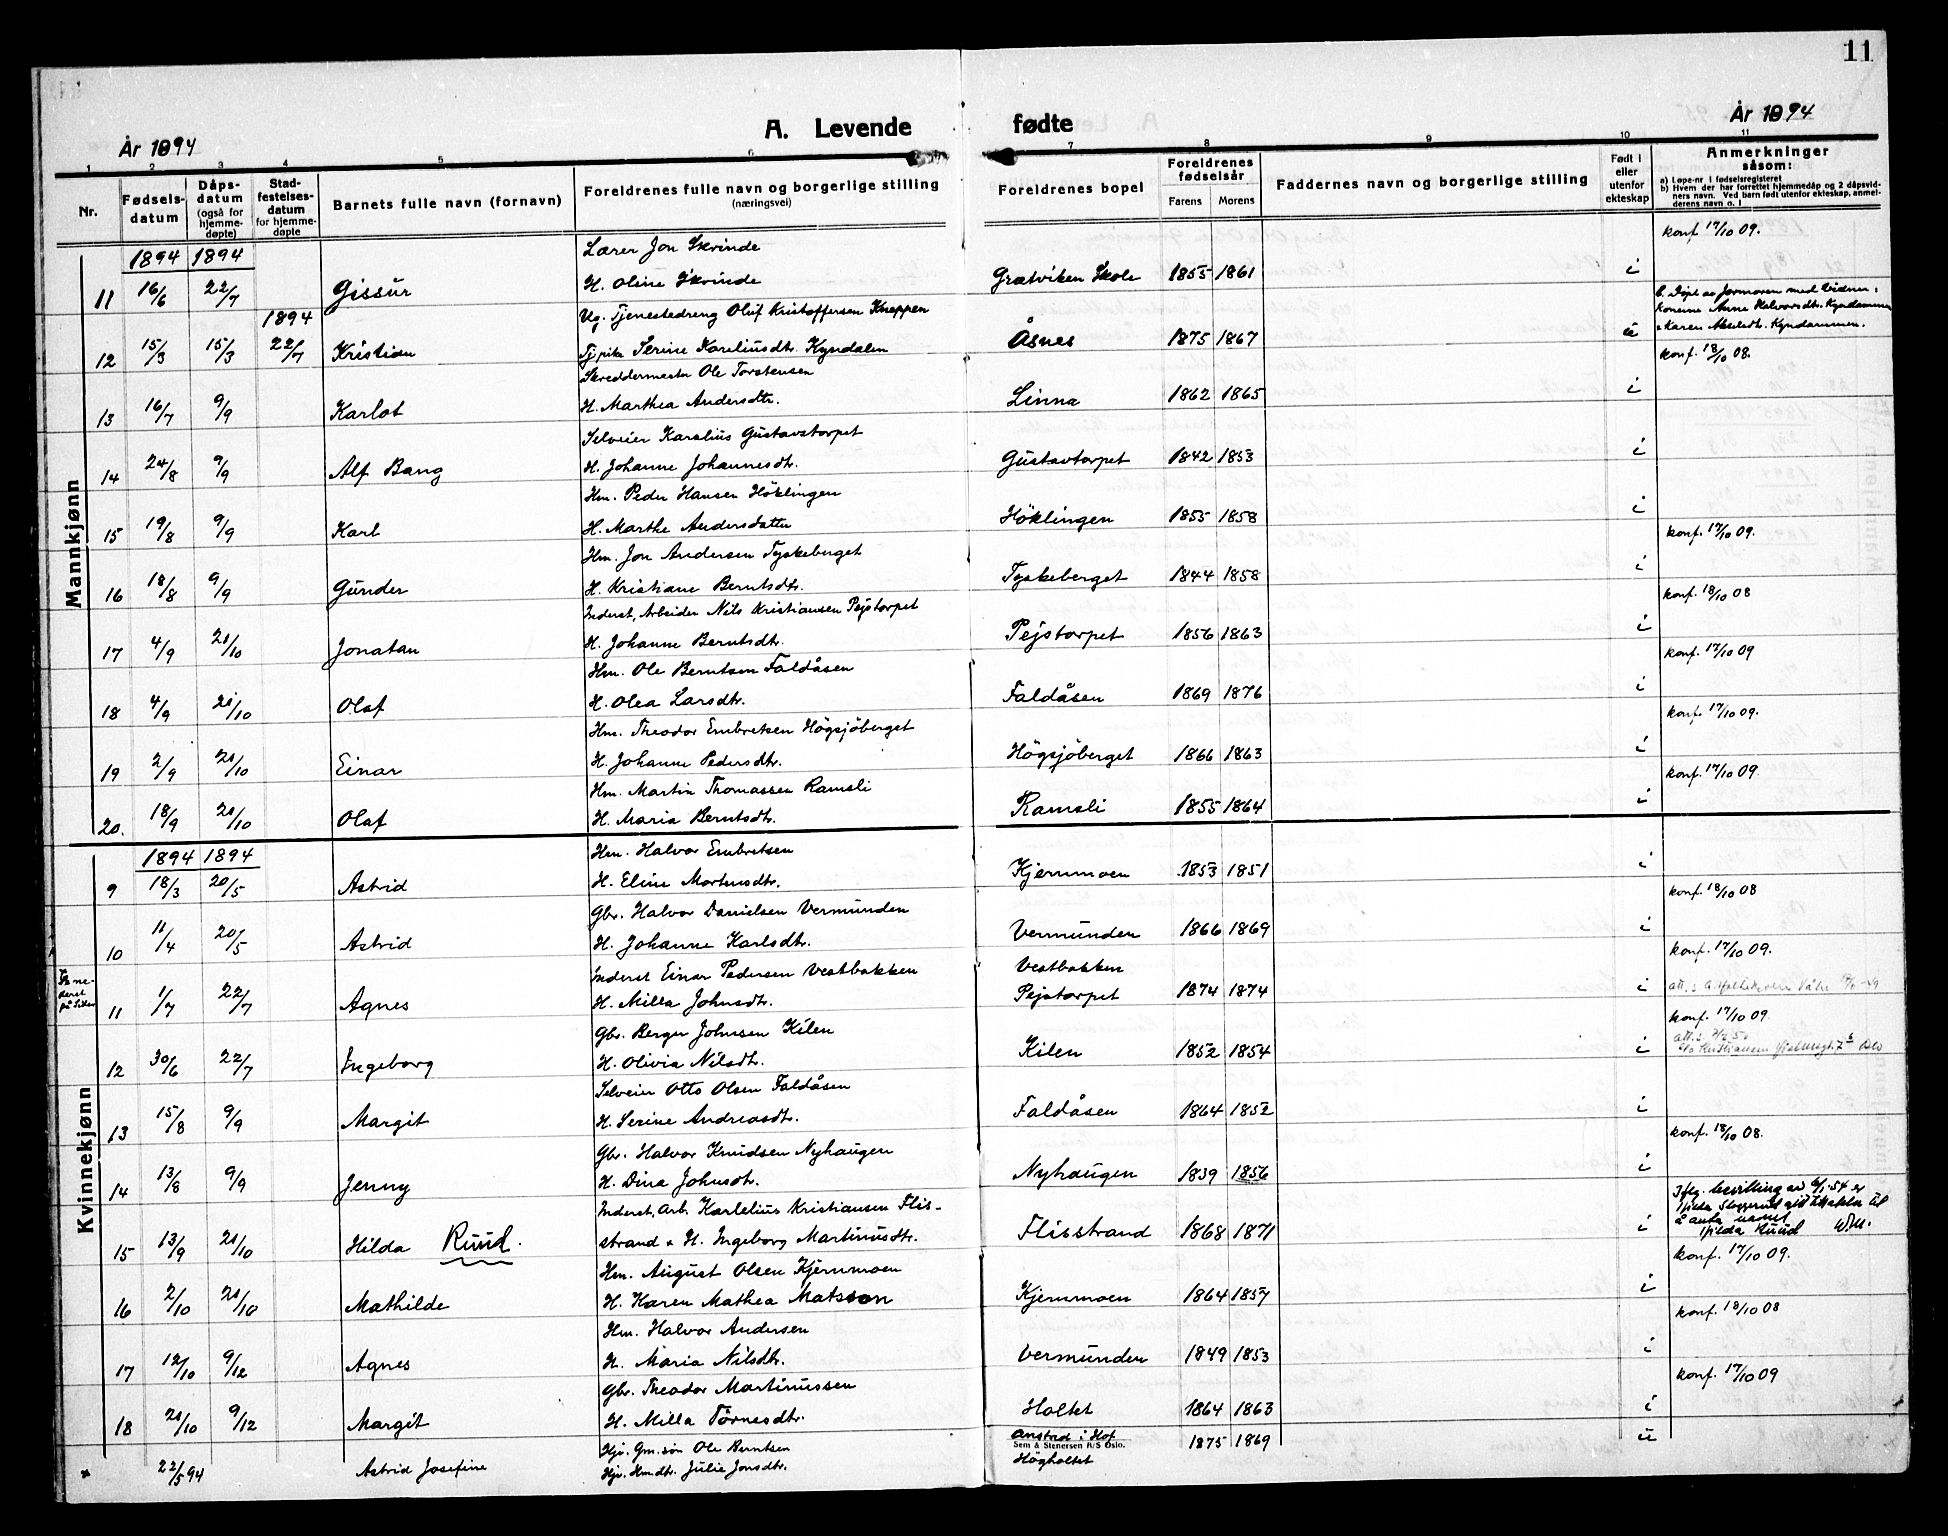 11
År 1894
A. Levende fødte
År 1894
1 2 3 4 5 6 7 8 9 10 11
Nr.
Fødsels-datum
Dåps-datum (også for hjemme-døpte)
Stad-festelses-datum for hjemme-døpte
Barnets fulle navn (fornavn)
Foreldrenes fulle navn og borgerlige stilling (næringsvei)
Foreldrenes bopel
Foreldrenes fødselsår Farens Morens
Faddernes navn og borgerlige stilling
Født i eller utenfor ekteskap
Anmerkninger såsom:
a) Løpe-nr i fødselsregisteret
b) Hvem der har forrettet hjemmedåp og 2 dåpsvidners navn. Ved barn født utenfor ekteskap, anmelderens navn o. l
Mannkjønn
1894 1894
Lærer Jon Skrinde konf. 17/10 09.
11 16/6 22/7 Gissur H. Oline Skrinde Grætviken Skole 1855 1861 i
1894 Ug. Tjenestedreng Oluf Kristoffersen Kneppen b. Døpt av Jormoren med Vidner:
konerne Anne Halvorsdtr. Kyndammen
12 15/3 15/3 22/7 Kristian Tj pike Serine Kareliusdtr. Kyndalen Åsnes 1875 1867 u Karen Akseldtr. Kyndammen.
Skreddermester Ole Torstensen konf. 18/10 08.
13 16/7 9/9 Karlot H. Marthea Andersdtr. Linna 1862 1865 i
Selveier Karelius Gustavstorpet
14 24/8 9/9 Alf Bang H. Johanne Johannesdtr. Gustavtorpet 1842 1853 i
Hm. Peder Hansen Höklingen
15 19/8 9/9 Karl H. Marthe Andersdatter Höklingen 1855 1858 i
Hm. Jon Andersen Tyskeberget konf. 17/10 09.
16 18/8 9/9 Gunder H. Kristiane Berntsdtr. Tyskeberget 1844 1858 i
Inderst, Arbeider Nils Kristiansen Pejstorpet konf. 18/10 08
17 4/9 21/10 Jonatan H. Johanne Berntsdtr. Pejstorpet 1856 1863 i
Hm. Ole Berntsen Faldåsen konf. 17/10 09
18 4/9 21/10 Olaf H. Olea Larsdtr. Faldåsen 1869 1876 i
Hm. Theodor Embretsen Högsjöberget konf. 17/10 09.
19 2/9 21/10 Einar H. Johanne Pedersdtr. Högsjöberget 1866 1863 i
Hm. Martin Thomassen Ramsli konf. 17/10 09.
20. 18/9 21/10 Olaf H. Maria Berntsdtr. Ramsli 1855 1864 i
Kvinnekjønn
1894 1894 Hm. Halvor Embretsen
9 18/3 20/5 Astrid H. Eline Mortensdtr. Kjernmoen 1853 1851 i
Gbr. Halvor Danielsen Vermunden konf. 18/10 08
10 11/4 20/5 Astrid H. Johanne Karlsdtr. Vermunden 1866 1869 i
Inderst Einar Pedersen Vestbakken Vestbakken konf. 17/10 09.
11 1/7 22/7 Agnes H. Milla Johnsdtr. Pejstorpet 1874 1874 i
Gbr. Berger Johnsen Kilen konf. 17/10 09
12 30/6 22/7 Ingeborg H. Olivia Nilsdtr. Kilen 1852 1854 i
Selveier Otto Olsen Faldåsen
13 15/8 9/9 Margit H. Serine Andreasdtr. Faldåsen 1864 1852 i
Gbr. Halvor Knudsen Nyhaugen konf. 18/10 08.
14 13/8 9/9 Jenny H. Dina Johnsdtr. Nyhaugen 1839 1856 i
Inderst, Arb. Karlelius Kristiansen Flis-
15 13/9 21/10 Hilda Ruud. strand & H. Ingeborg Martinusdtr. Flisstrand 1868 1871 i
å anta navnet
Hilda Ruud
Hm. August Olsen Kjernmoen konf. 17/10 09.
16 2/10 21/10 Mathilde H. Karen Mathea Matsson Kjernmoen 1864 1857 i
Hm. Halvor Andersen konf. 18/10 08
17 12/10 9/12 Agnes H. Maria Nilsdtr. Vermunden 1849 1853 i
Gbr. Theodor Martinussen konf. 17/10 09
18 21/10 9/12 Margit H. Milla Törnesdtr. Holtet 1864 1863 i
Hjv. Gm. sön Ole Berntsen Anstad i Hof 1875 1869 u
Sem & Stenersen A/S Oslo.
* 22/5 94 Astrid Josefine Hjv. Hm.dtr. Julie Jonsdtr. Högholtet